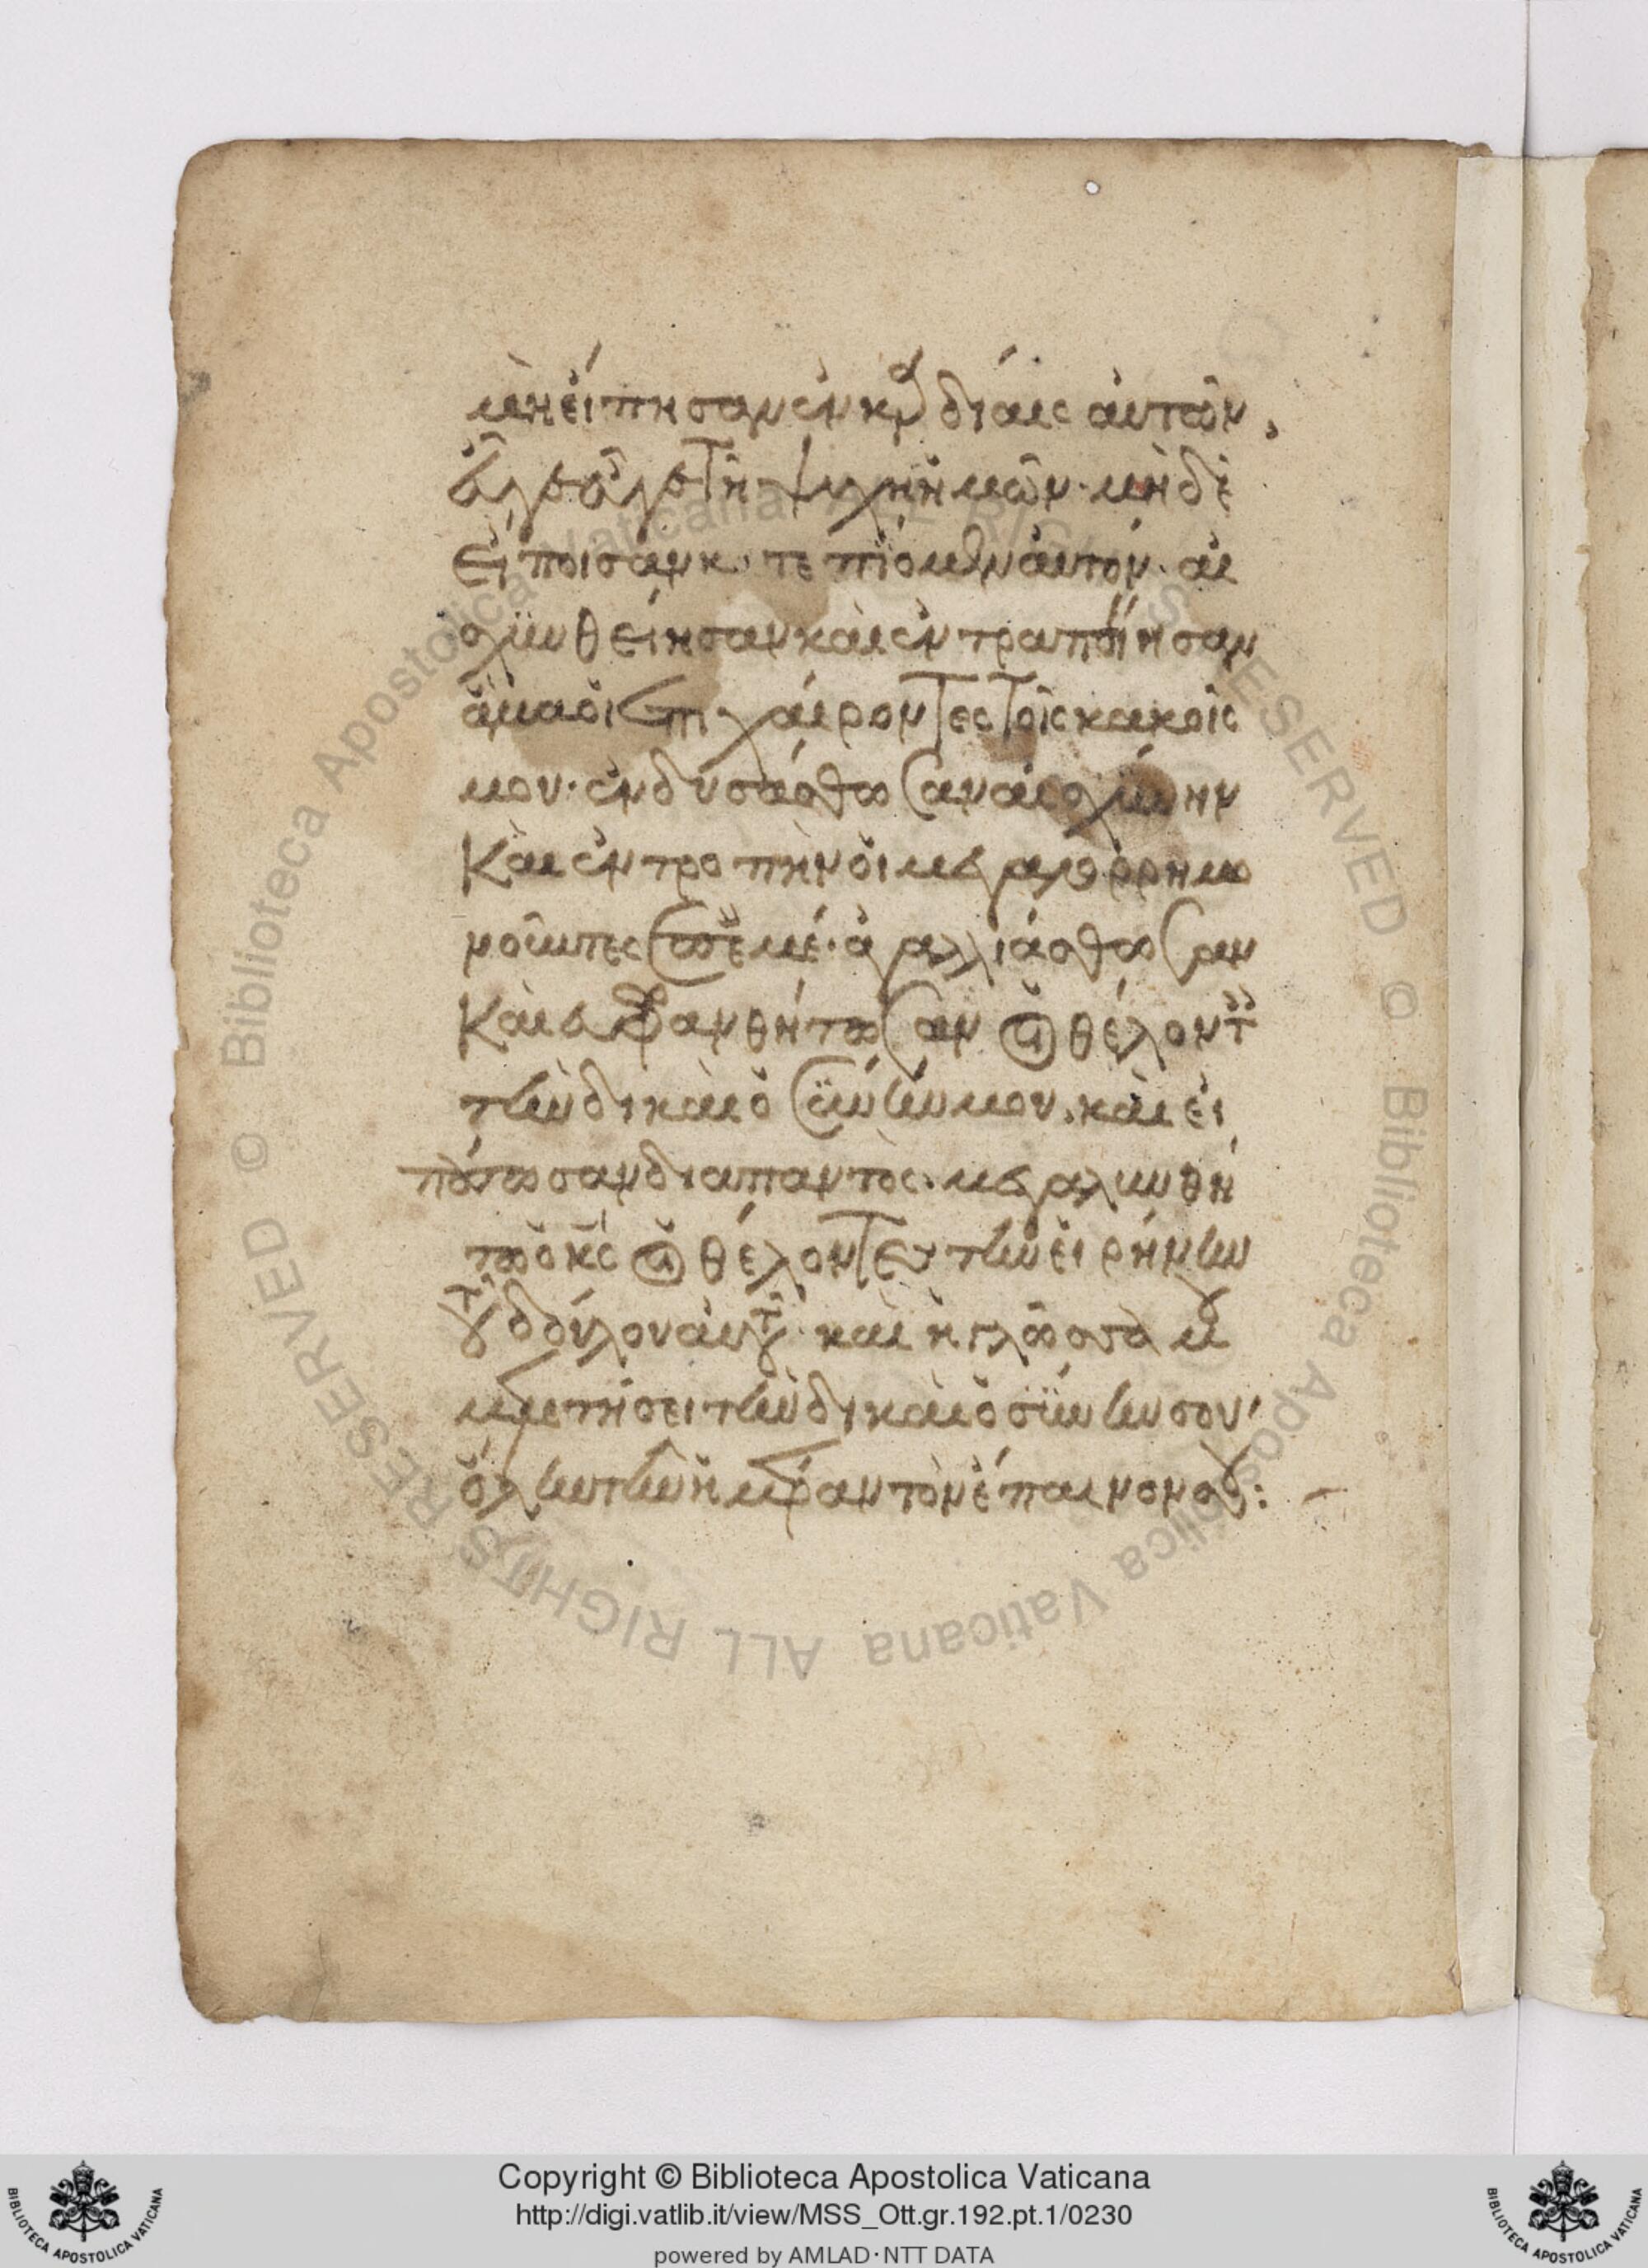 μὴ εἴπησαν ἐν καρδίαις αὐτῶν,
εὖγε εὖγε τῆ ψυχῆ ἡμῶν· μὴ δὲ
εἴποισαν κατεπίομεν αὐτόν· αἰ
σχυνθείησαν καὶ ἐντραπείησαν
ἅμα οἱ ἐπιχαίροντες τοῖς κακοῖς
μου· ἐνδυσάσθωσαν αἰσχύνην
καὶ ἐντροπὴν οἱ μεγαλορρημο
νοῦντες ἐπ' ἐμέ· ἀγαλλιάσθωσαν
καὶ εὐφρανθήτωσαν οἱ θέλοντες
τὴν δικαιοσύνην μου. καὶ εἰ
πάτωσαν διαπαντός· μεγαλυνθή
τω ὁ κς οἱ θέλοντες τὴν εἰρήνην
τοῦ δούλου αὐτοῦ· καὶ ἡ γλῶσσά μου
μελετήσει τὴν δικαιοσύνην σου,
ὅλην τὴν ἡμέραν τὸν ἔπαινόν σου:
Copyright © Biblioteca Apostolica Vaticana
http://digi.vatlib.it/view/MSS_Ott.gr.192.pt.1/0230
powered by AMLAD·NTT DATA